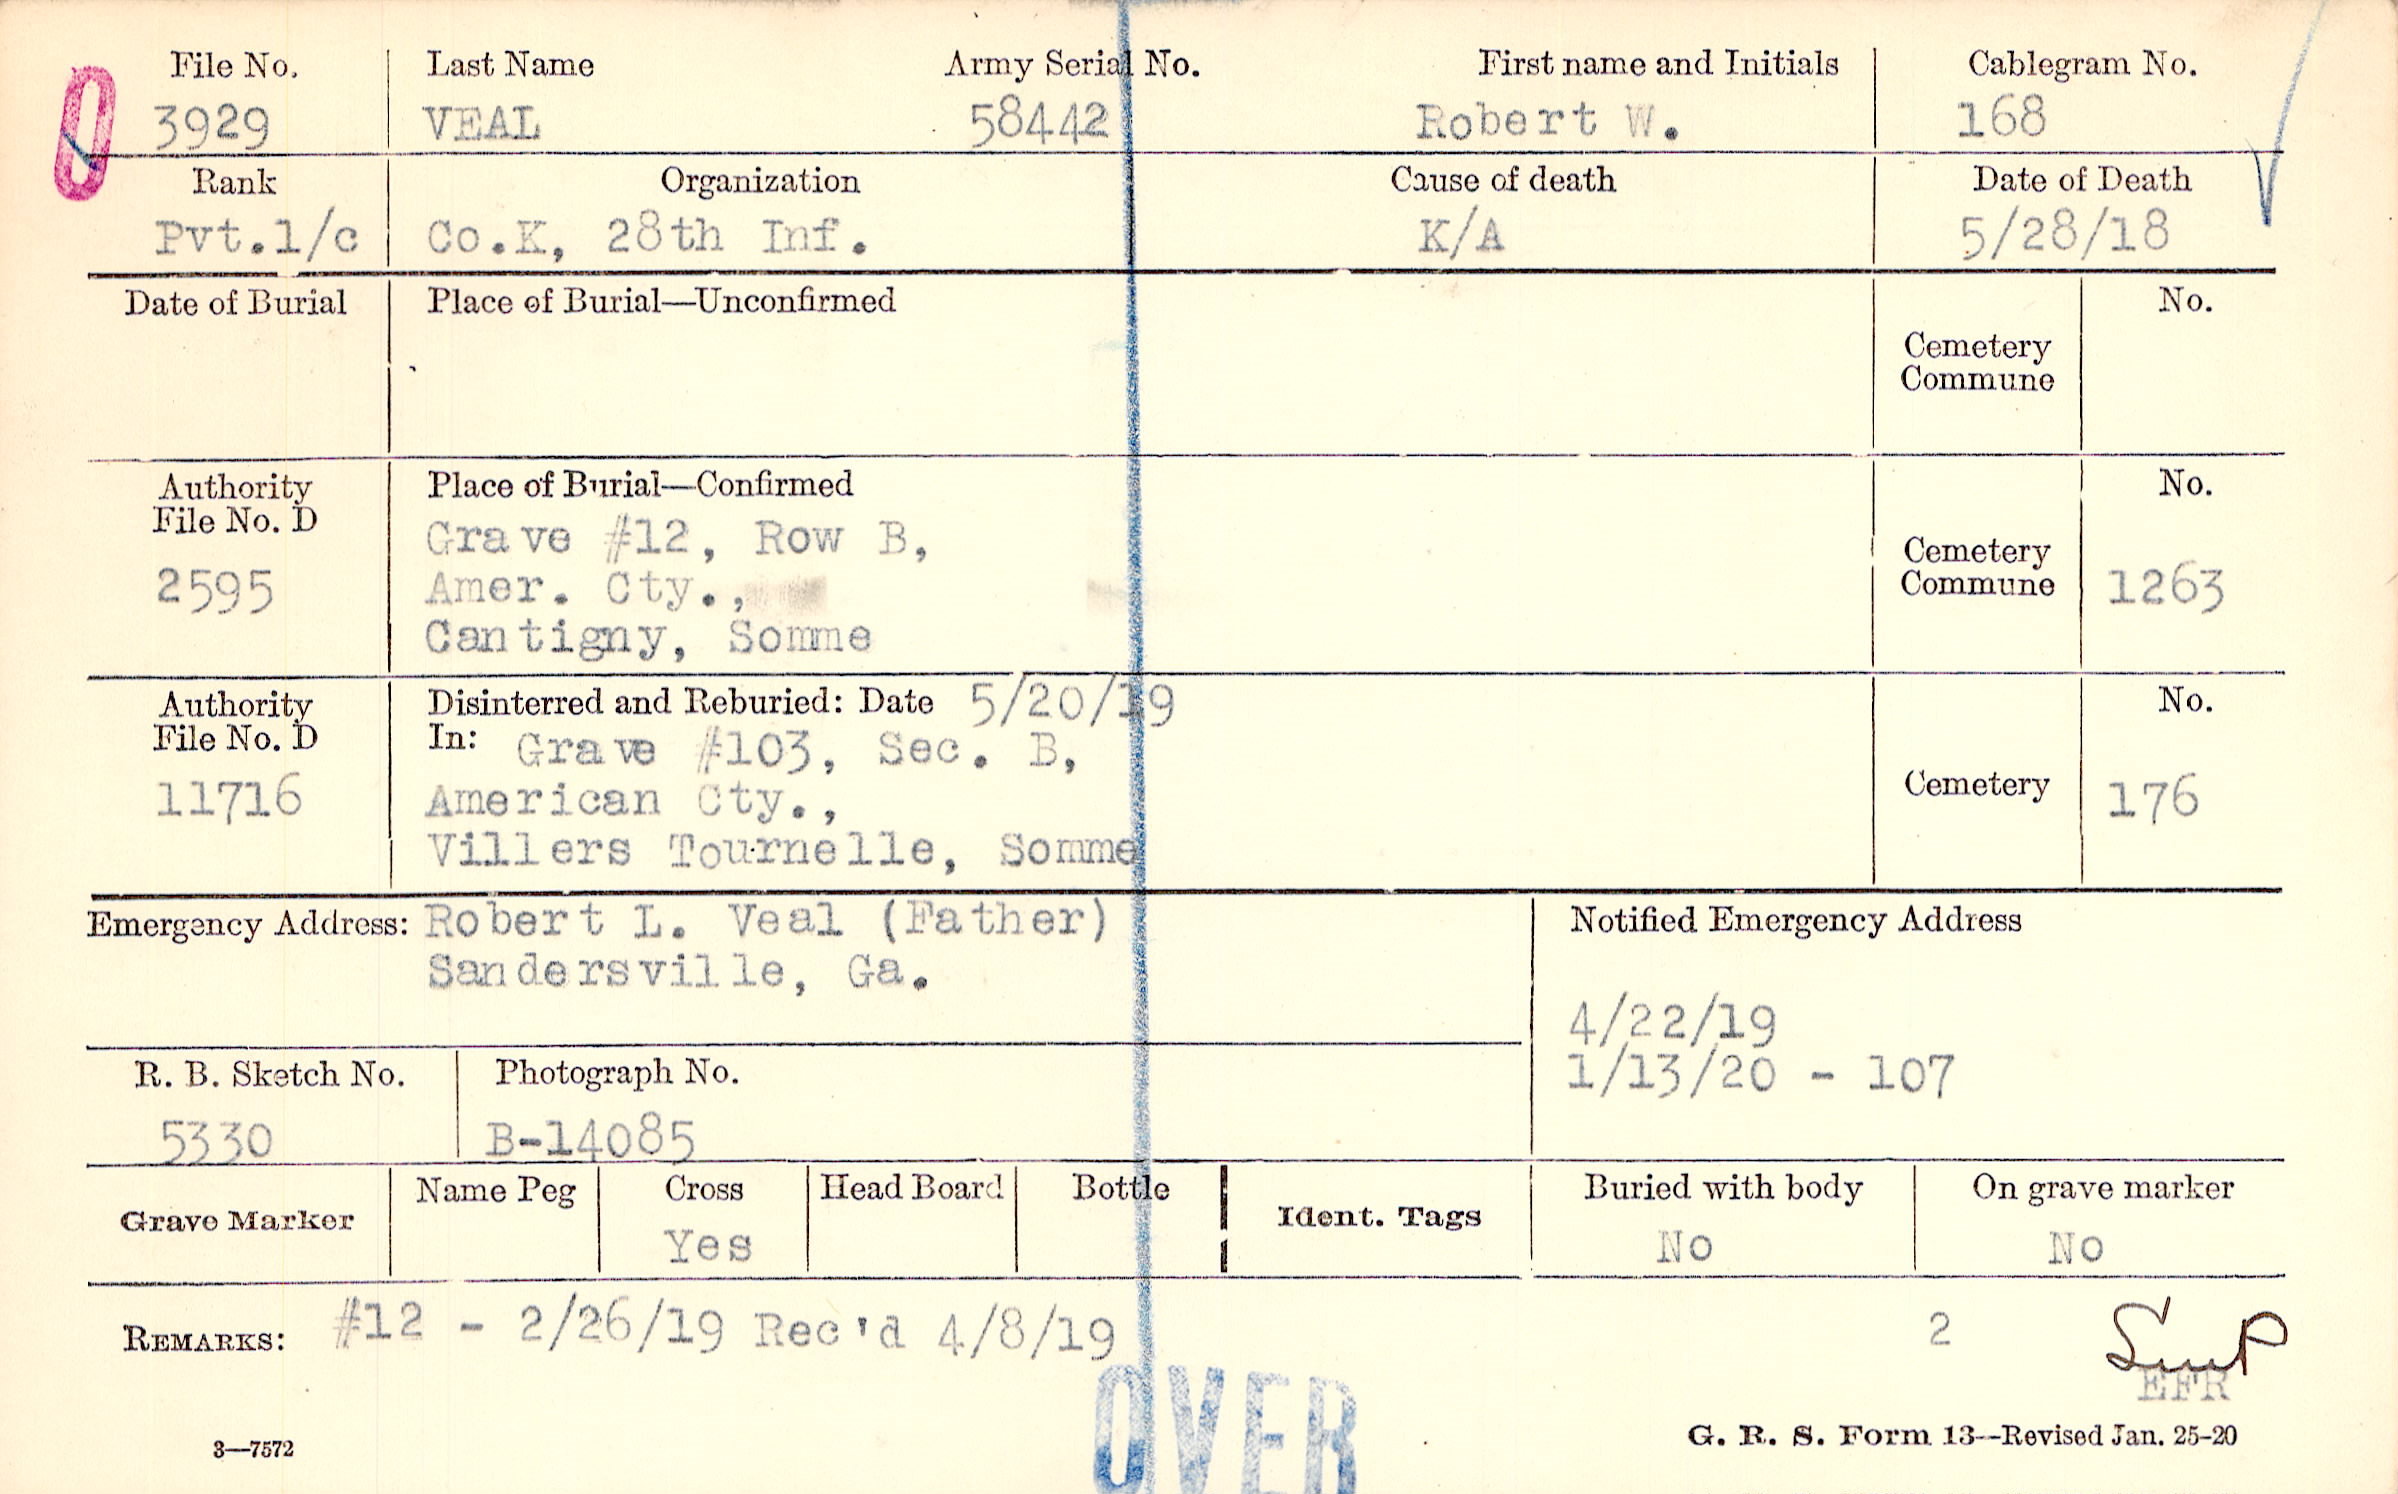 File No. Last Name Army Serial No. First name and Initials Cablegram No.
0
3929 VEAL 58442 Robert W. 168
Rank Organization Cause of death Date of Death
Pvt.1/c Co.K, 28th Inf. K/A 5/28/18
Date of Burial Place of Burial—Unconfirmed No.
Cemetery
Commune
Authority Place of Burial—Confirmed No.
File No. D
Grave #12, Row B,
2595 Amer. Cty., Cemetery
Commune 1263
Cantigny, Somme
Authority Disinterred and Reburied: Date 5/20/19 No.
File No. D In: Grave #103, Sec. B,
11716 American Cty., Cemetery 176
Villers Tournelle, Somme
Emergency Address: Robert L. Veal (Father) Notified Emergency Address
Sandersville, Ga.
4/22/19
1/13/20 - 107
R. B. Sketch No. Photograph No.
5330 B-14085
Grave Marker Name Peg Cross Head Board Bottle Ident. Tags Buried with body On grave marker
Yes No No
REMARKS: #12 - 2/26/19 Rec'd 4/8/19 2
EFR
OVER
3—7572 G. R. S. Form 13—Revised Jan. 25-20